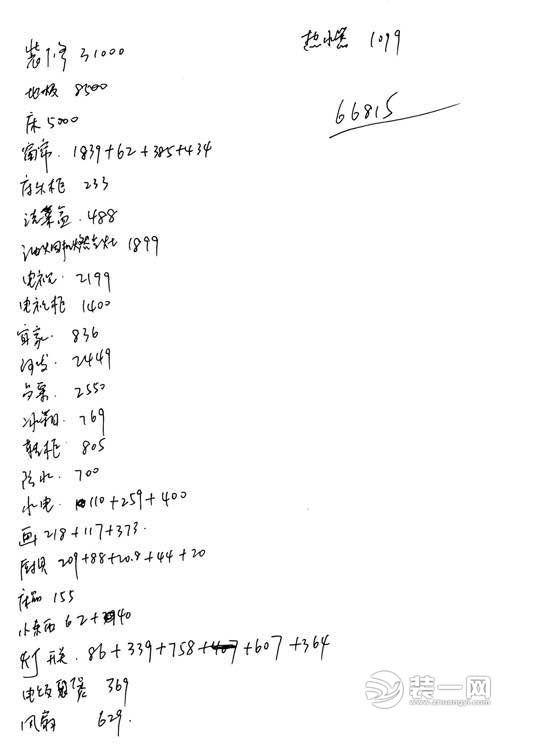 装修 31000
地板 8500
床 5000
窗帘. 1839+62+385+434
床头柜 233
洗菜盆. 488
油烟机燃气灶 1899
电视. 2199
电视柜 1400
宜家. 836
沙发. 2449
2550
冰箱. 769
鞋柜 805
防水. 700
水电. 110+259+400
画 218+117+373.
厨具 209+88+20.8+44+20
床品 155
小东西 62+40
灯 开关. 86+339+758+607+364
电饭煲 369
风扇 629.
热水器 1099
66815
装一网
www.zhuangyi.com